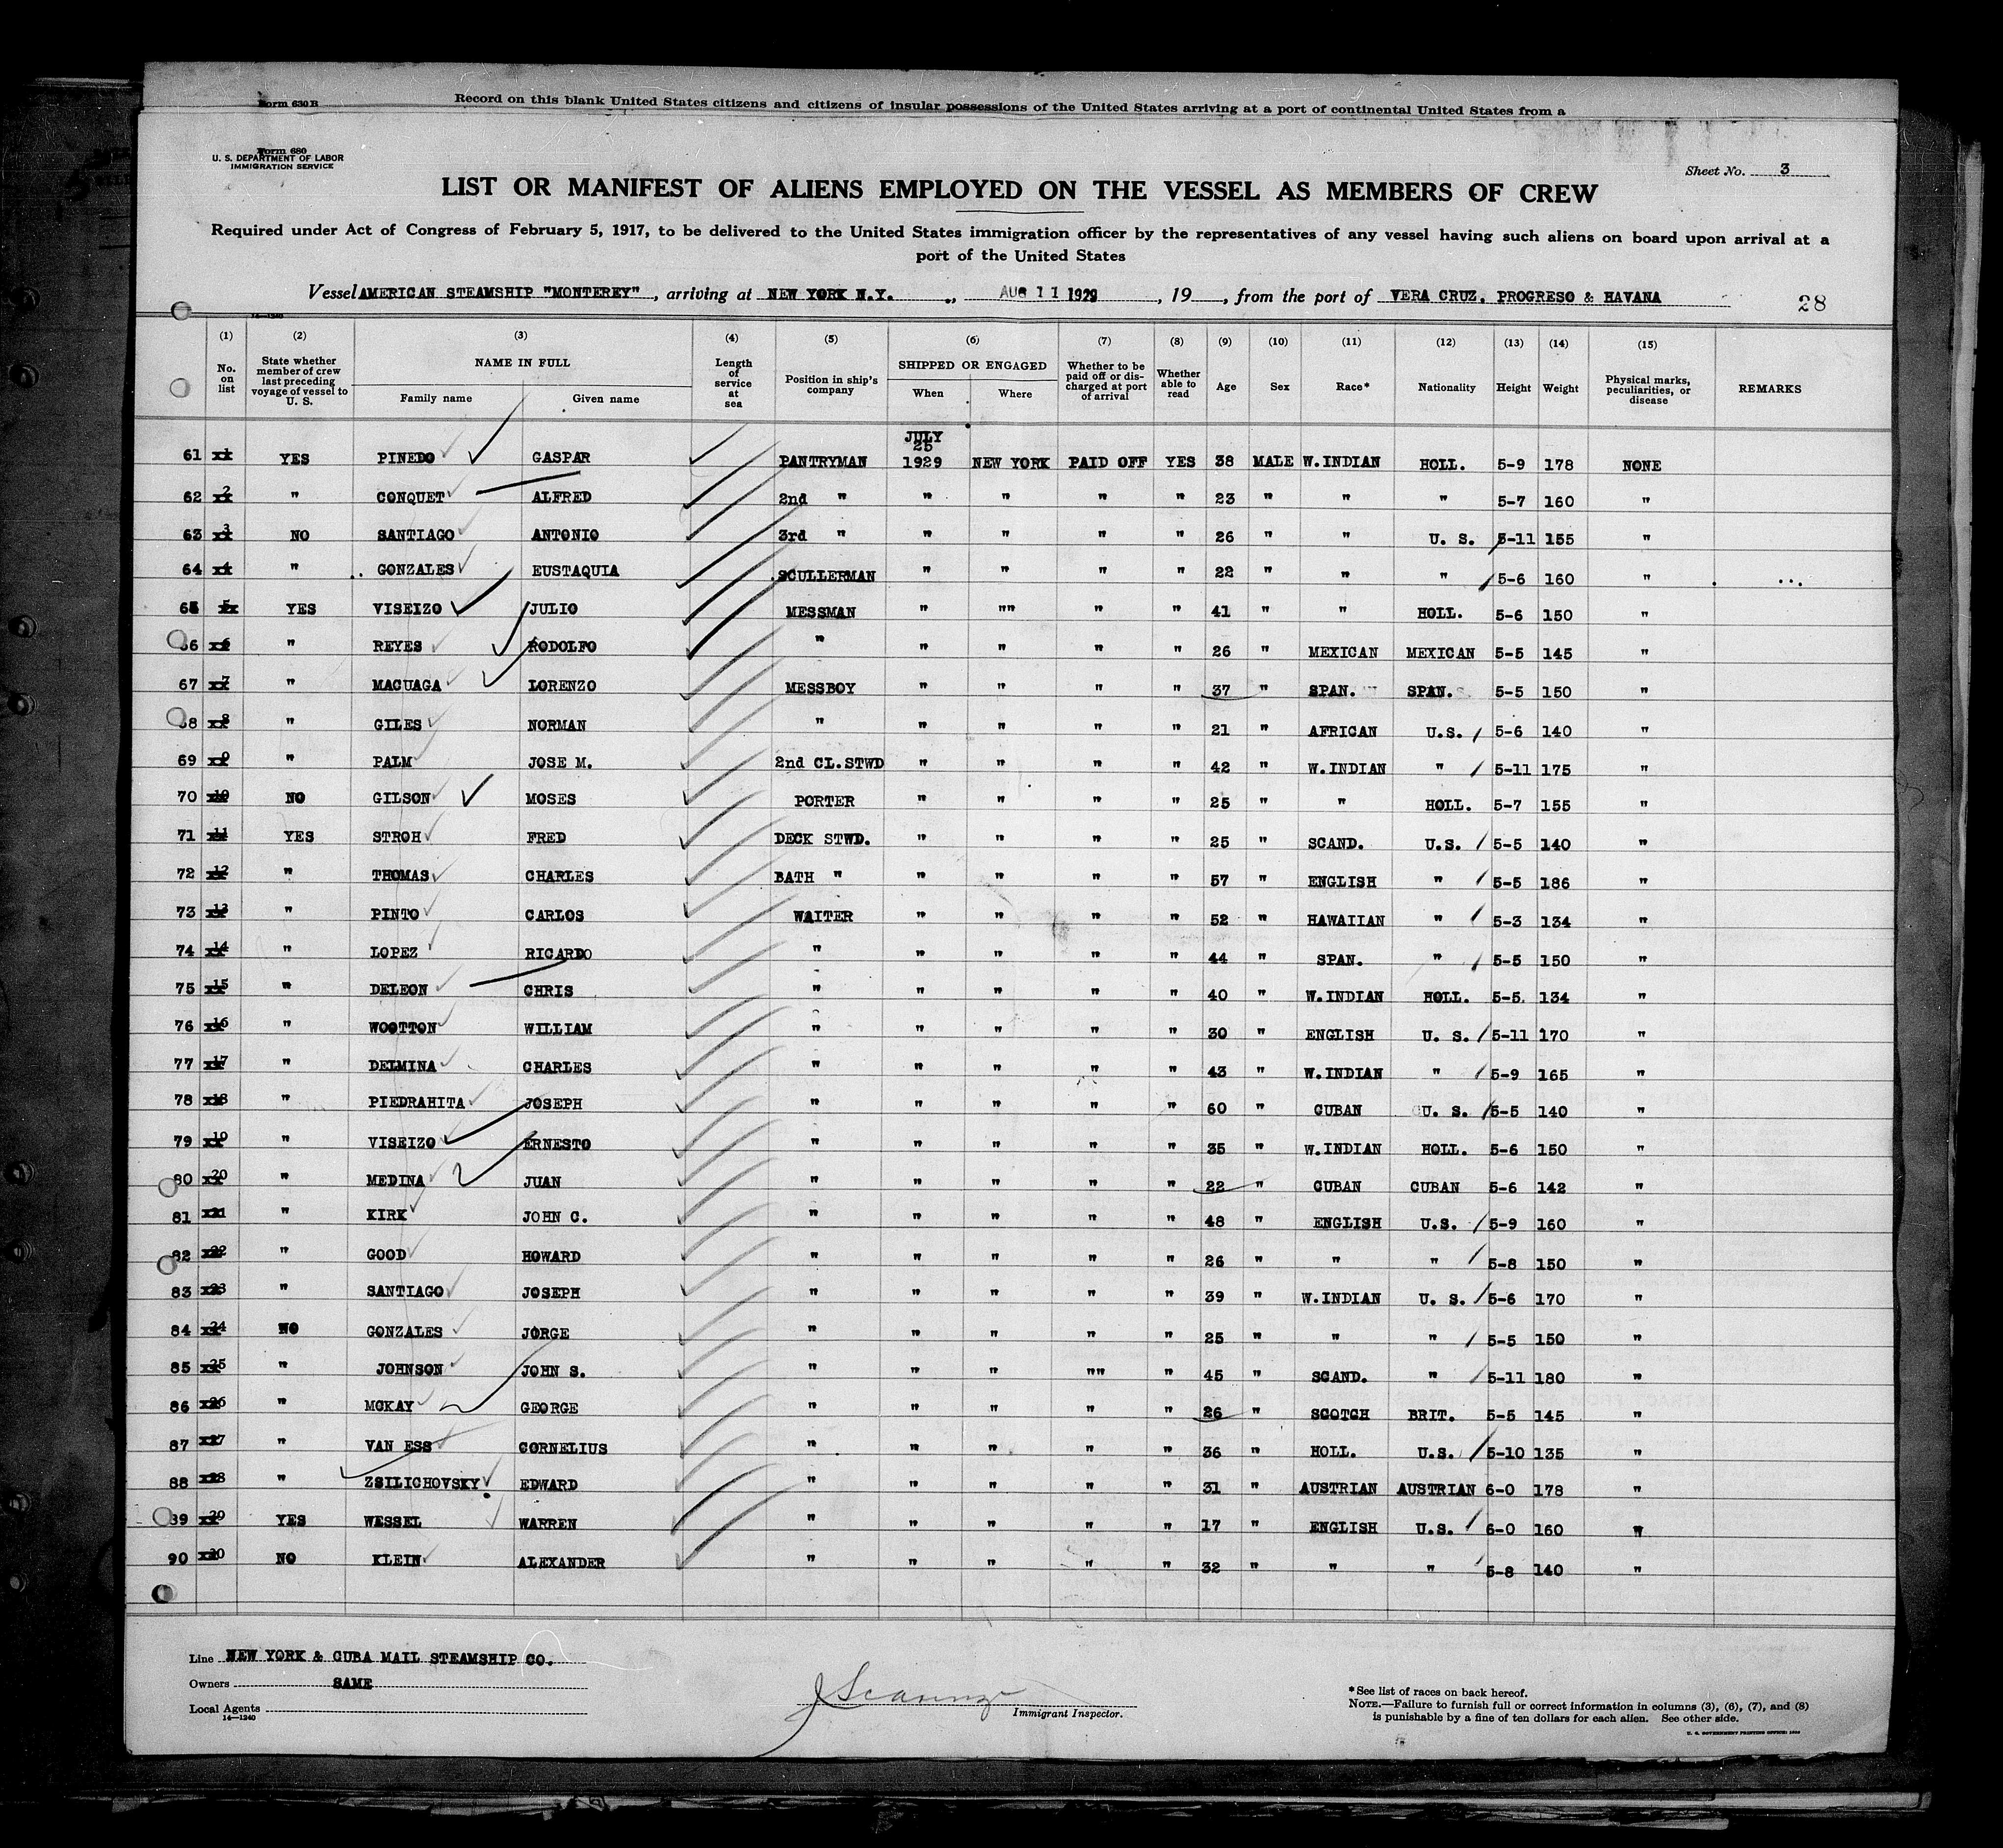 Form 630 B
Record on this blank United States citizens and citizens of insular possessions of the United States arriving at a port of continental United States from a
Form 680
U. S. DEPARTMENT OF LABOR
IMMIGRATION SERVICE
Sheet No. 3
LIST OR MANIFEST OF ALIENS EMPLOYED ON THE VESSEL AS MEMBERS OF CREW
Required under Act of Congress of February 5, 1917, to be delivered to the United States immigration officer by the representatives of any vessel having such aliens on board upon arrival at a
port of the United States
Vessel AMERICAN STEAMSHIP "MONTEREY", arriving at NEW YORK N.Y., AUG 11 1929, 19, from the port of VERA CRUZ, PROGRESO & HAVANA
28
14—1240
(1) (2) (3) (4) (5) (6) (7) (8) (9) (10) (11) (12) (13) (14) (15)
No. on list
State whether member of crew last preceding voyage of vessel to U. S.
NAME IN FULL
Family name
Given name
Length of service at sea
Position in ship's company
SHIPPED OR ENGAGED
When
Where
Whether to be paid off or discharged at port of arrival
Whether able to read
Age
Sex
Race*
Nationality
Height
Weight
Physical marks, peculiarities, or disease
REMARKS
JULY
25
61 1 YES PINEDO GASPAR PANTRYMAN 1929 NEW YORK PAID OFF YES 38 MALE W.INDIAN HOLL. 5-9 178 NONE
62 2 " CONQUET ALFRED 2nd " " " " " 23 " " " 5-7 160 "
63 3 NO SANTIAGO ANTONIO 3rd " " " " " 26 " " U. S. 5-11 155 "
64 4 " GONZALES EUSTAQUIA SCULLERMAN " " " " 22 " " " 5-6 160 "
65 5 YES VISEIZO JULIO MESSMAN " "" " " 41 " " HOLL. 5-6 150 "
66 6 " REYES RODOLFO " " " " " 26 " MEXICAN MEXICAN 5-5 145 "
67 7 " MACUAGA LORENZO MESSBOY " " " " 37 " SPAN. SPAN. 5-5 150 "
68 8 " GILES NORMAN " " " " " 21 " AFRICAN U.S. 5-6 140 "
69 9 " PALM JOSE M. 2nd CL.STWD " " " " 42 " W.INDIAN " 5-11 175 "
70 10 NO GILSON MOSES PORTER " " " " 25 " " HOLL. 5-7 155 "
71 11 YES STROH FRED DECK STWD. " " " " 25 " SCAND. U.S. 5-5 140 "
72 12 " THOMAS CHARLES BATH " " " " " 57 " ENGLISH " 5-5 186 "
73 13 " PINTO CARLOS WAITER " " " " 52 " HAWAIIAN " 5-3 134 "
74 14 " LOPEZ RICARDO " " " " " 44 " SPAN. " 5-5 150 "
75 15 " DELEON CHRIS " " " " " 40 " W.INDIAN HOLL. 5-5 134 "
76 16 " WOOTTON WILLIAM " " " " " 30 " ENGLISH U. S. 5-11 170 "
77 17 " DELMINA CHARLES " " " " " 43 " W.INDIAN " 5-9 165 "
78 18 " PIEDRAHITA JOSEPH " " " " " 60 " CUBAN U. S. 5-5 140 "
79 19 " VISEIZO ERNESTO " " " " " 35 " W.INDIAN HOLL. 5-6 150 "
80 20 " MEDINA JUAN " " " " " 22 " CUBAN CUBAN 5-6 142 "
81 21 " KIRK JOHN C. " " " " " 48 " ENGLISH U.S. 5-9 160 "
82 22 " GOOD HOWARD " " " " " 26 " " " 5-8 150 "
83 23 " SANTIAGO JOSEPH " " " " " 39 " W.INDIAN U. S. 5-6 170 "
84 24 NO GONZALES JORGE " " " " " 25 " " " 5-5 150 "
85 25 " JOHNSON JOHN S. " " " "" " 45 " SCAND. " 5-11 180 "
86 26 " MCKAY GEORGE " " " " " 26 " SCOTCH BRIT. 5-5 145 "
87 27 " VAN ESS CORNELIUS " " " " " 36 " HOLL. U.S. 5-10 135 "
88 28 " ZSILICHOVSKY EDWARD " " " " " 31 " AUSTRIAN AUSTRIAN 6-0 178 "
89 29 YES WESSEL WARREN " " " " " 17 " ENGLISH U.S. 6-0 160 "
90 30 NO KLEIN ALEXANDER " " " " " 32 " " " 5-8 140 "
Line NEW YORK & CUBA MAIL STEAMSHIP CO.
Owners SAME
Local Agents
14—1240
Immigrant Inspector.
*See list of races on back hereof.
NOTE.—Failure to furnish full or correct information in columns (3), (6), (7), and (8)
is punishable by a fine of ten dollars for each alien. See other side.